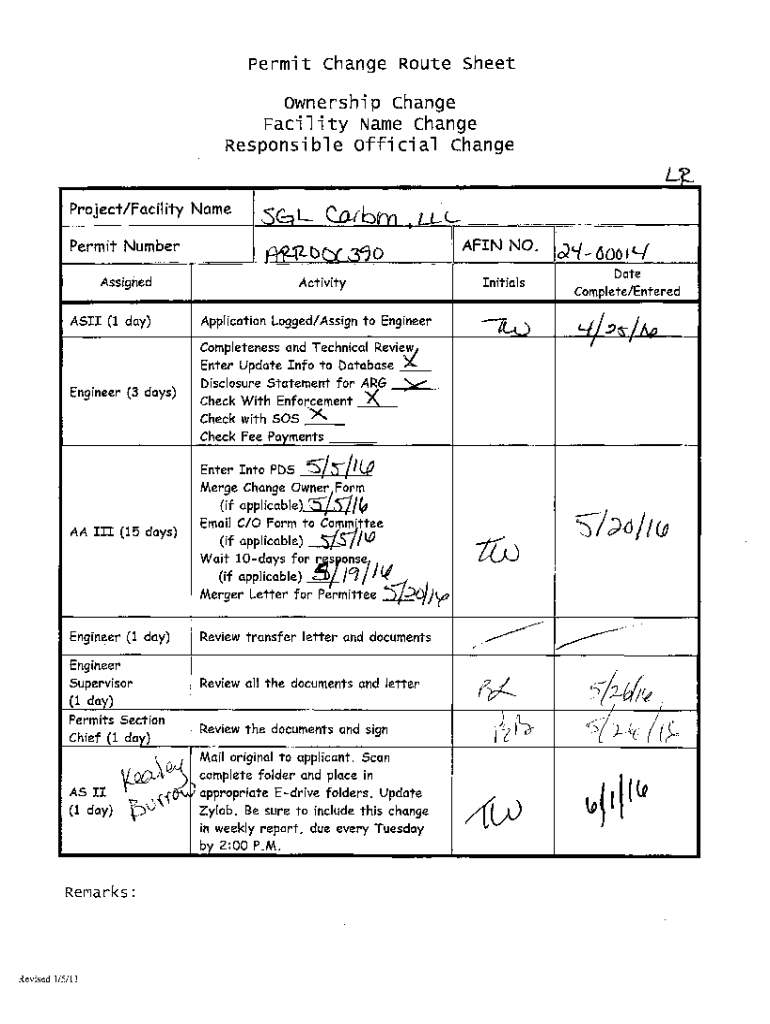 Permit Change Route Sheet
Ownership Change
Facility Name Change
Responsible Official Change
LR
Project/Facility Name SGL Carbon, LLC
Permit Number ARR00C390 AFIN NO. 24-00014
Assigned Activity Initials Date Complete/Entered
ASII (1 day) Application Logged/Assign to Engineer TW 4/25/16
Engineer (3 days)
Completeness and Technical Review,
Enter Update Info to Database X
Disclosure Statement for ARG X
Check With Enforcement X
Check with SOS X
Check Fee Payments ______
AA III (15 days) TW 5/20/16
Enter Into PDS 5/5/16
Merge Change Owner Form
(if applicable) 5/5/16
Email C/O Form to Committee
(if applicable) 5/5/16
Wait 10-days for response
(if applicable) 5/19/16
Merger Letter for Permittee 5/20/16
Engineer (1 day) Review transfer letter and documents
Engineer
Supervisor
(1 day)
Review all the documents and letter 5/26/16
Permits Section
Chief (1 day)
Review the documents and sign
AS II
(1 day)
Kealey
Burrow
Mail original to applicant. Scan
complete folder and place in
appropriate E-drive folders. Update
Zylab. Be sure to include this change
in weekly report, due every Tuesday
by 2:00 P.M.
TW 6/1/16
Remarks:
Revised 1/5/11